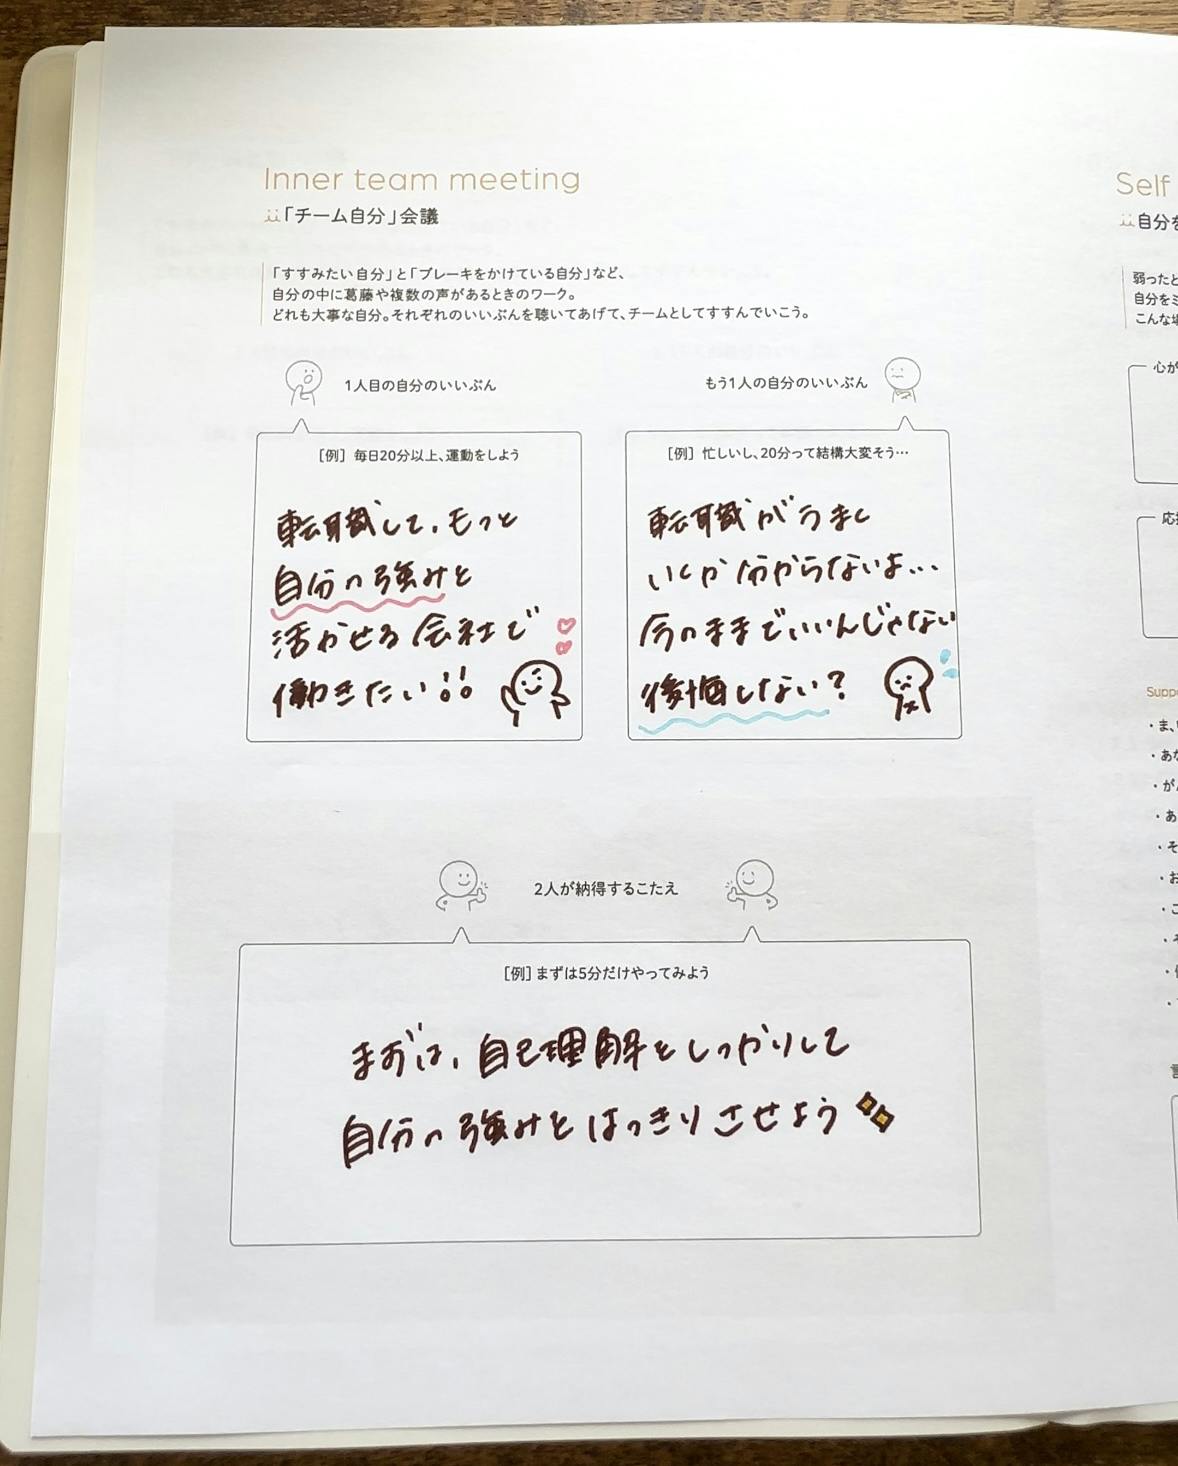 Inner team meeting
「チーム自分」会議
「すすみたい自分」と「ブレーキをかけている自分」など、
自分の中に葛藤や複数の声があるときのワーク。
どれも大事な自分。それぞれのいいぶんを聴いてあげて、チームとしてすすんでいこう。
1人目の自分のいいぶん
[例] 毎日20分以上、運動をしよう
転職して、もっと
自分の強みを
活かせる会社で
働きたい!!
もう1人の自分のいいぶん
[例] 忙しいし、20分って結構大変そう…
転職がうまく
いくか分からないよ...
今のままでいいんじゃない
後悔しない?
2人が納得するこたえ
[例] まずは5分だけやってみよう
まずは、自己理解をしっかりして
自分の強みをはっきりさせよう
Self
自分を
弱ったと
自分を
こんな場
心が
応
Supp
・ま、
・あな
・が
・あ
・そ
・お
・こ